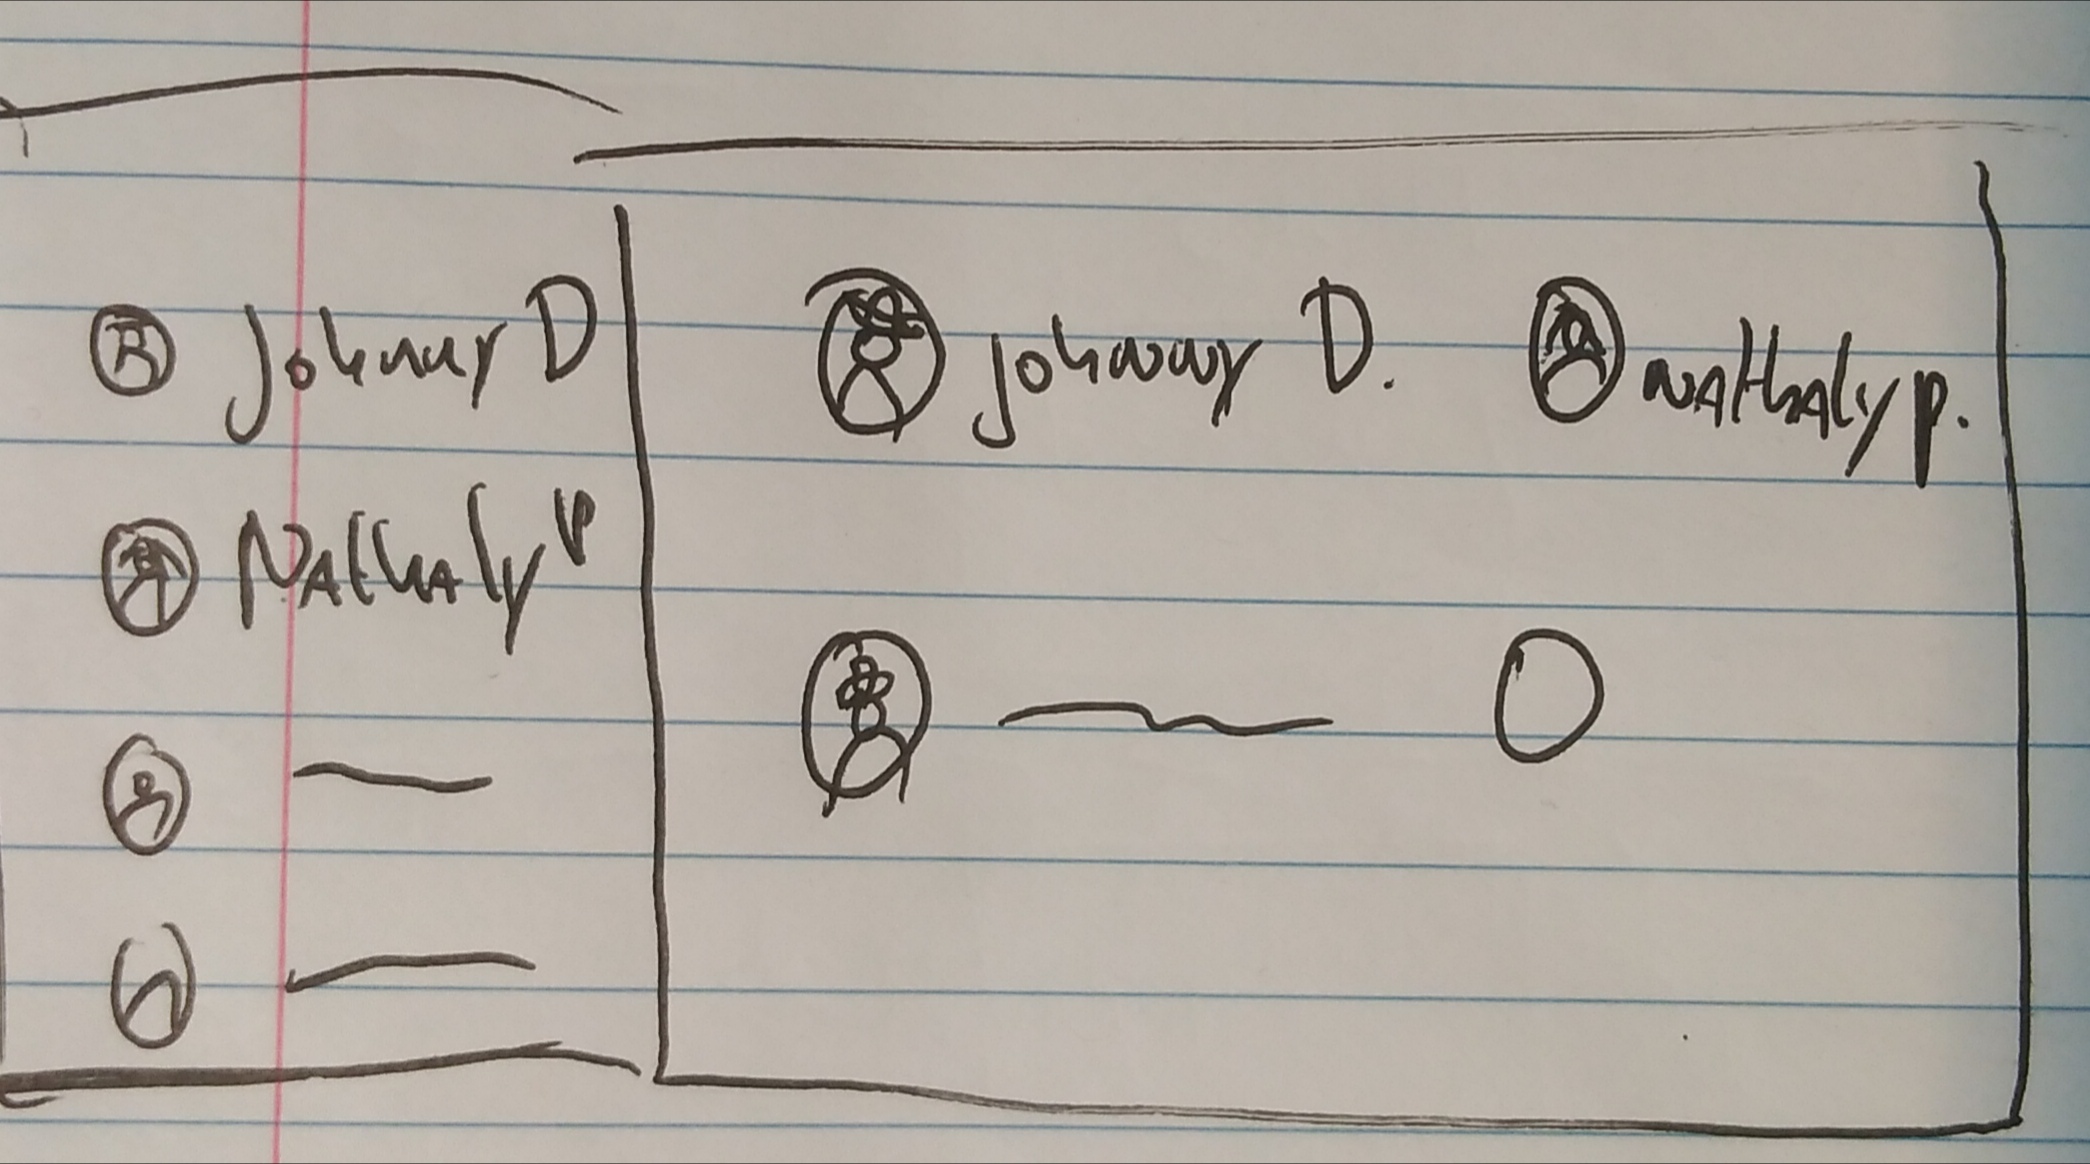 Johnny D
Nathaly P
Johnny D.
Nathaly P.